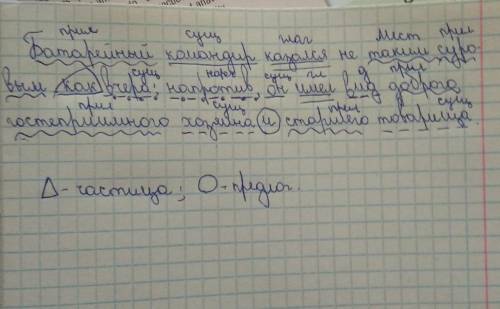 прил сущ глаг мест прил
Батарейный командир казался не таким суро-
сущ нареч сущ гл д прил
вым как вчера; напротив, он имел вид доброго
прил сущ прил сущ
гостеприимного хозяина и старшего товарища.
Δ-частица; О-предлог.